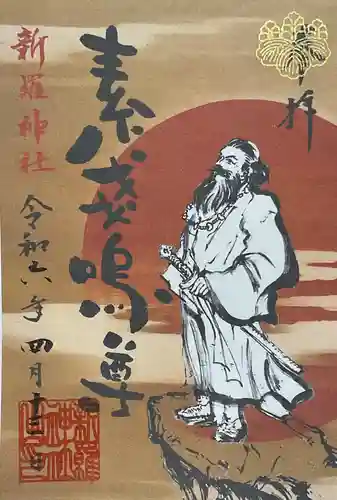 奉拝
素戔嗚尊
新羅神社
令和六年四月十三日
新羅
神社
之印